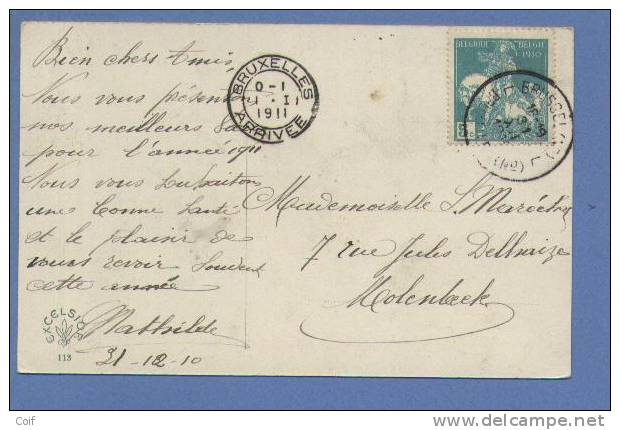 Bien chers Amis,
Nous vous présentons
nos meilleurs
pour l'année 1911
Nous vous souhaitons
une bonne santé
et le plaisir de
vous revoir souvent
cette année
Mathilde
31-12-10
EXCELSIOR
113
BRUXELLES
0-1
1·I
1911
ARRIVEE
BELGIQUE BELGIË
1910
BRUSSEL
(NO)
Mademoiselle
7 rue Jules Delhaize
Molenbeek
Coif
www.delcampe.net